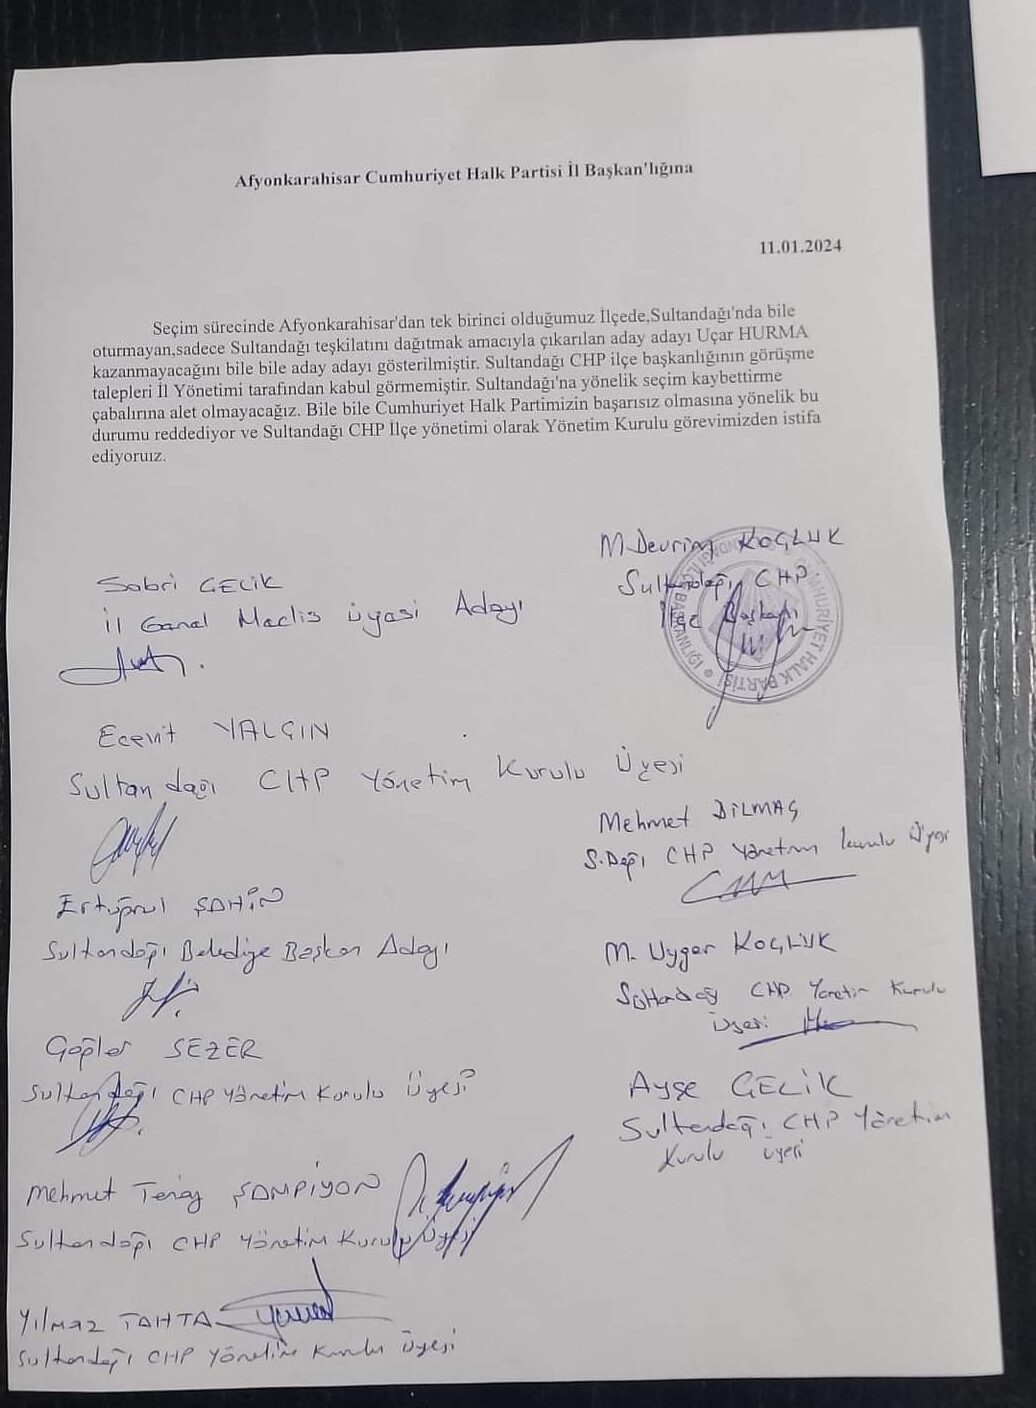 Afyonkarahisar Cumhuriyet Halk Partisi İl Başkan'lığına
11.01.2024
Seçim sürecinde Afyonkarahisar'dan tek birinci olduğumuz İlçede,Sultandağı'nda bile
oturmayan,sadece Sultandağı teşkilatını dağıtmak amacıyla çıkarılan aday adayı Uçar HURMA
kazanmayacağını bile bile aday adayı gösterilmiştir. Sultandağı CHP ilçe başkanlığının görüşme
talepleri İl Yönetimi tarafından kabul görmemiştir. Sultandağı'na yönelik seçim kaybettirme
çabalırına alet olmayacağız. Bile bile Cumhuriyet Halk Partimizin başarısız olmasına yönelik bu
durumu reddediyor ve Sultandağı CHP İlçe yönetimi olarak Yönetim Kurulu görevimizden istifa
ediyoruız.
M.Devrim KOÇLUK
Sultandağı CHP
İlçe Başkanı
CUMHURİYET HALK PARTİSİ
BAŞKANLIĞI
Sabri ÇELİK
İl Genel Meclis Üyesi Adayı
Ecevit YALÇIN
Sultandağı CHP Yönetim Kurulu Üyesi
Mehmet DİLMAÇ
S.Dağı CHP Yönetim kurulu Üyesi
Ertuğrul ŞAHİN
Sultandağı Belediye Başkan Adayı
M. Uygar KOÇLUK
Sultandağ CHP Yönetim Kurulu
Üyesi
Sultandağı CHP Yönetim Kurulu Üyesi
SEZER
Ayşe ÇELİK
Sultandağı CHP Yönetim
Kurulu üyesi
Mehmet ŞAMPİYON
Sultandağı CHP Yönetim Kurulu Üyesi
Yılmaz TAHTA
Sultandağı CHP Yönetim Kurulu Üyesi